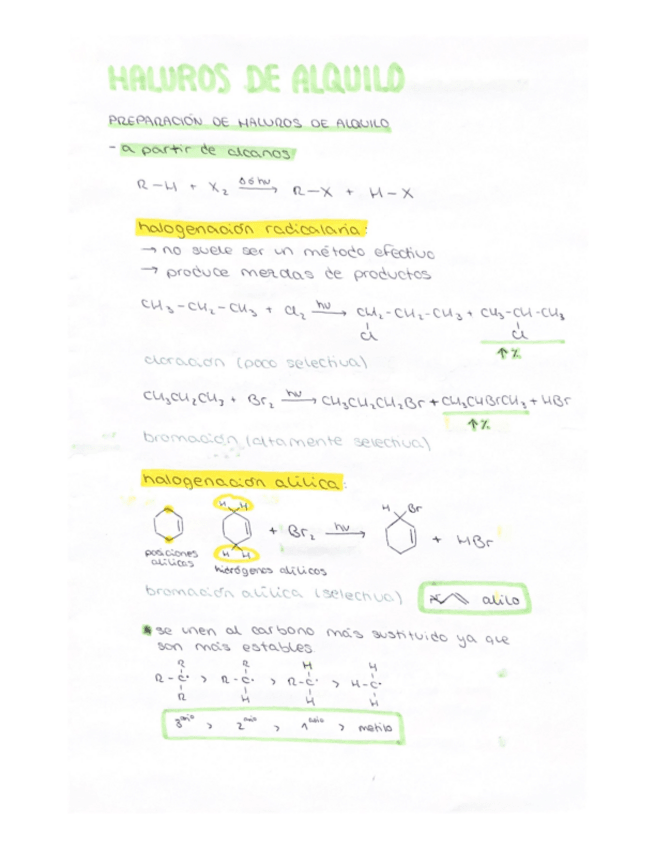 HALUROS DE ALQUILO
PREPARACIÓN DE HALUROS DE ALQUILO
- a partir de alcanos
R-H + X₂ —Δ ó hν→ R-X + H-X
halogenación radicalaria:
→ no suele ser un método efectivo
→ produce mezclas de productos
CH₃-CH₂-CH₃ + Cl₂ —hν→ CH₂-CH₂-CH₃ + CH₃-CH-CH₃
Cl Cl
↑%
cloración (poco selectiva)
CH₃CH₂CH₃ + Br₂ —hν→ CH₃CH₂CH₂Br + CH₃CHBrCH₃ + HBr
↑%
bromación (altamente selectiva)
halogenación alílica:
H H H Br
+ Br₂ —hν→ + HBr
H H
posiciones alílicas
hidrógenos alílicos
bromación alílica (selectiva)
alilo
* se unen al carbono más sustituido ya que
son más estables
R R H H
R-C· > R-C· > R-C· > H-C·
R H H H
3ario > 2ario > 1ario > metilo